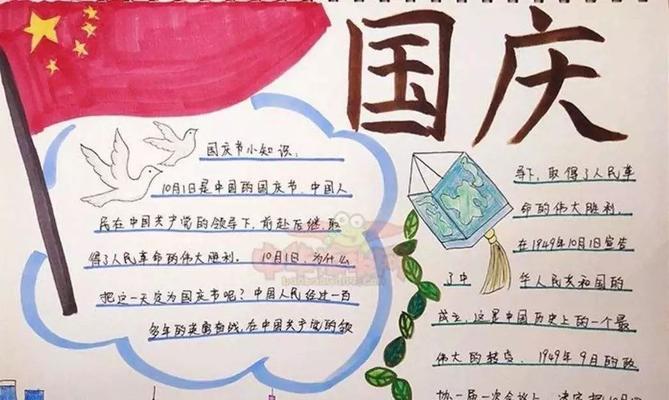 国庆
国庆节小知识：
10月1日是中国的国庆节.中国人
民在中国共产党的领导下,前赴后继,取
得了人民革命的伟大胜利. 10月1日,为什么
把这一天定为国庆节呢？中国人民经过一百
多年的英勇奋战,在中国共产党的领
导下,取得了人民革
命的伟大胜利.
在1949年10月1日宣告
了中 华人民共和国的
成立,这是中国历史上的一个最
伟大的转变. 1949年9月的政
协一届一次会议上,决定把10月